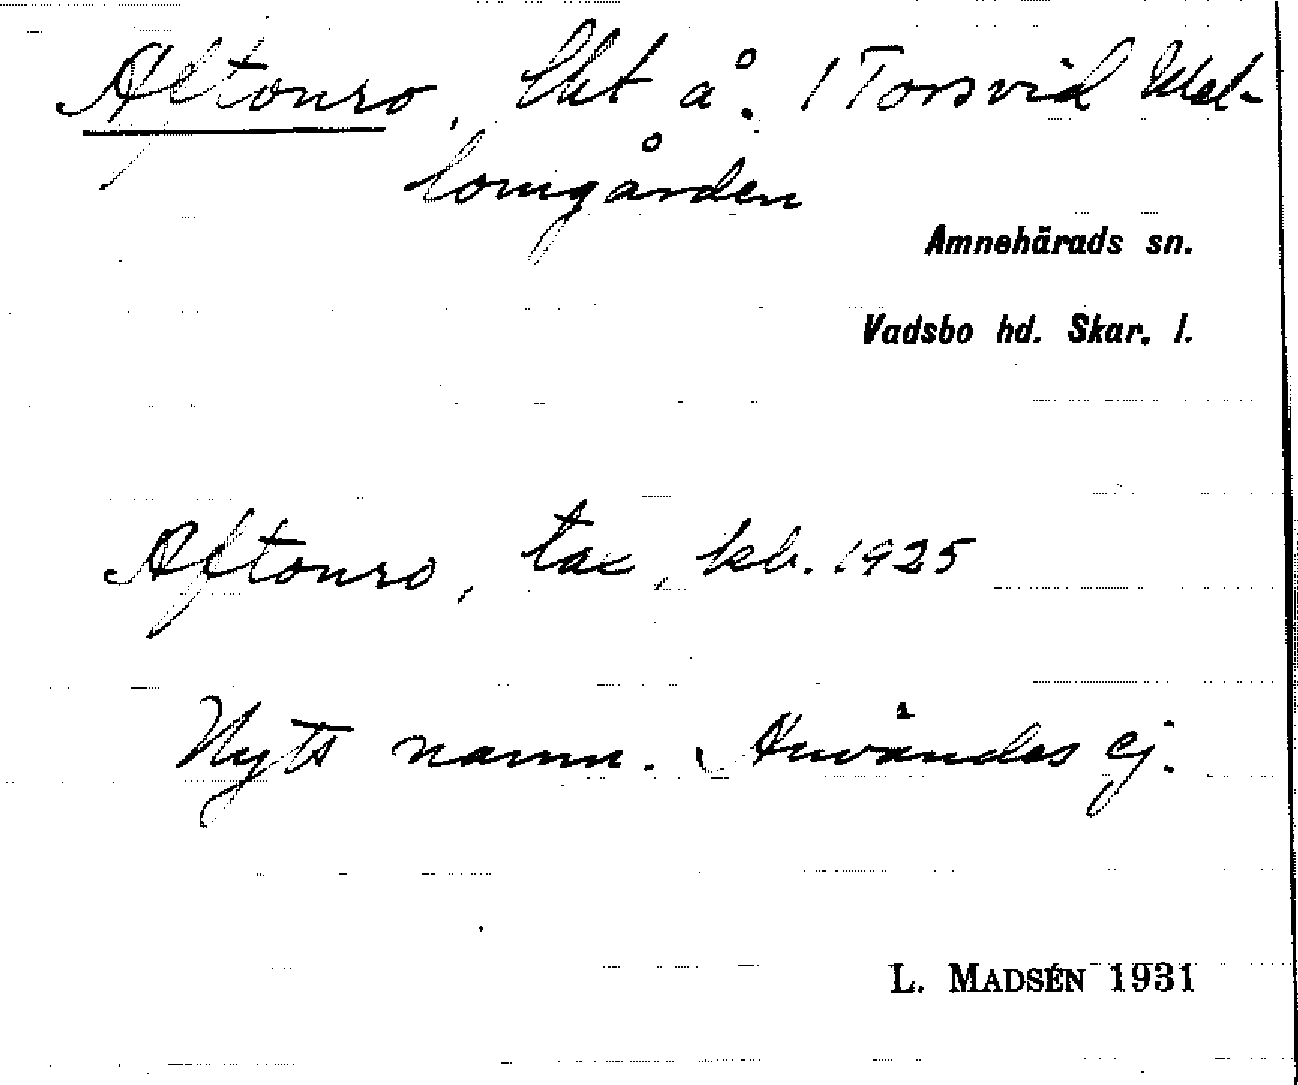 Aftonro, lht å. 1 Torsvid Mel-
lomgården
Amnehärads sn.
Vadsbo hd. Skar. l.
Aftonro, tax. lkb. 1925
Nytt namn. Användes ej.
L. MADSÉN 1931